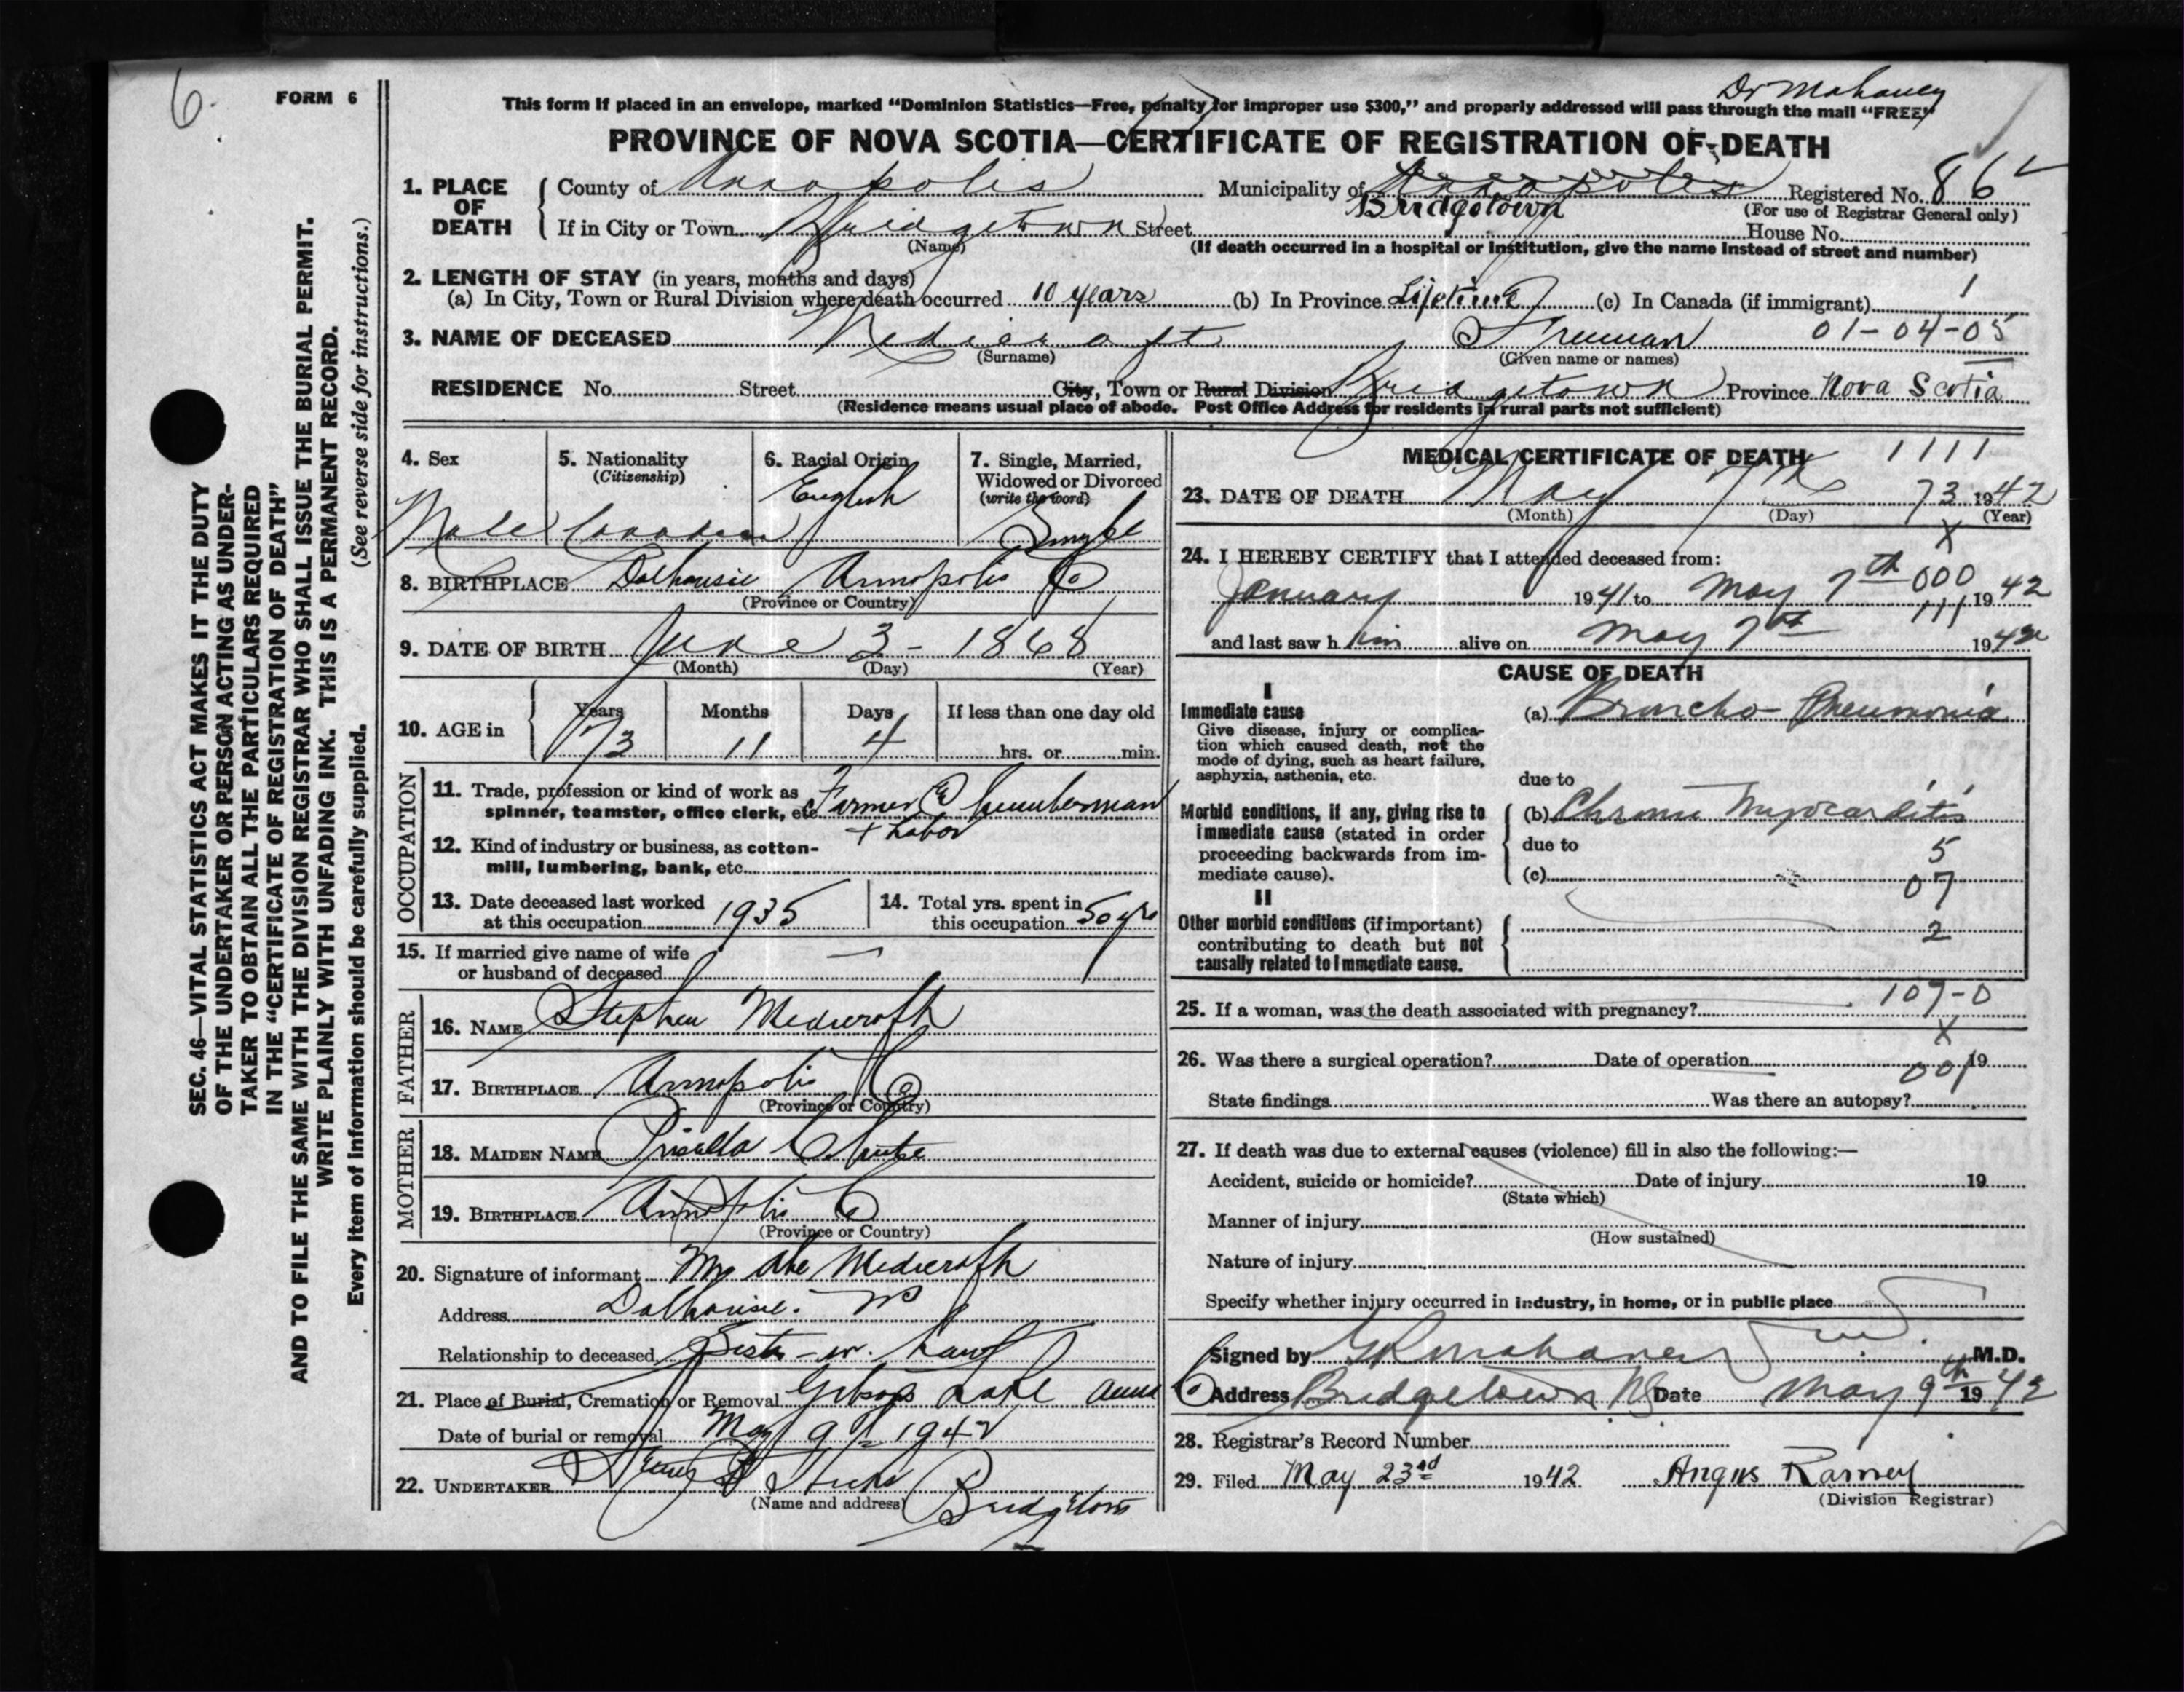 6.
FORM 6
Dr Mahaney
This form if placed in an envelope, marked "Dominion Statistics—Free, penalty for improper use $300," and properly addressed will pass through the mail "FREE"
PROVINCE OF NOVA SCOTIA—CERTIFICATE OF REGISTRATION OF DEATH
1. PLACE OF DEATH County of Annapolis Municipality of Annapolis Registered No. 86
Bridgetown (For use of Registrar General only)
If in City or Town Bridgetown Street House No.
(Name) (If death occurred in a hospital or institution, give the name instead of street and number)
2. LENGTH OF STAY (in years, months and days)
(a) In City, Town or Rural Division where death occurred 10 years (b) In Province Lifetime (c) In Canada (if immigrant) 1
3. NAME OF DECEASED Medicraft Freeman 01-04-05
(Surname) (Given name or names)
RESIDENCE No. Street City, Town or Rural Division Bridgetown Province Nova Scotia
(Residence means usual place of abode. Post Office Address for residents in rural parts not sufficient)
4. Sex 5. Nationality 6. Racial Origin 7. Single, Married,
(Citizenship) Widowed or Divorced
(write the word)
Male Canadian English Single
8. BIRTHPLACE Dalhousie Annapolis Co
(Province or Country)
9. DATE OF BIRTH June 3 - 1868
(Month) (Day) (Year)
10. AGE in Years Months Days If less than one day old
73 11 4 hrs. or min.
OCCUPATION
11. Trade, profession or kind of work as
spinner, teamster, office clerk, etc. Farmer & Lumberman
+ Labor
12. Kind of industry or business, as cotton-
mill, lumbering, bank, etc.
13. Date deceased last worked
at this occupation 1935
14. Total yrs. spent in
this occupation 50 yrs
15. If married give name of wife
or husband of deceased —
FATHER
16. NAME Stephen Medicroft
17. BIRTHPLACE Annapolis Co
(Province or Country)
MOTHER
18. MAIDEN NAME Prisilla
19. BIRTHPLACE Annapolis Co
(Province or Country)
20. Signature of informant Mrs Abe Medicroft
Address Dalhousie.
Relationship to deceased Sister-in-Law
21. Place of Burial, Cremation or Removal Gibsons Lake Anna Co
Date of burial or removal May 9 1942
22. UNDERTAKER Hicks Bridgetown
(Name and address)
MEDICAL CERTIFICATE OF DEATH 1111
23. DATE OF DEATH May 7th 73 1942
(Month) (Day) (Year)
X
24. I HEREBY CERTIFY that I attended deceased from:
January 1941 to May 7th 000 1942
111
and last saw h im alive on May 7th 1942
CAUSE OF DEATH
I
Immediate cause (a) Broncho-Pneumonia
Give disease, injury or complica-
tion which caused death, not the
mode of dying, such as heart failure,
asphyxia, asthenia, etc.
due to
Morbid conditions, if any, giving rise to
immediate cause (stated in order
proceeding backwards from im-
mediate cause).
(b) Chronic Myocarditis
due to 5
(c) 07
II
Other morbid conditions (if important)
contributing to death but not
causally related to immediate cause.
2
25. If a woman, was the death associated with pregnancy? 107-0
X
26. Was there a surgical operation? Date of operation 19
001
State findings Was there an autopsy?
27. If death was due to external causes (violence) fill in also the following:—
Accident, suicide or homicide? Date of injury 19
(State which)
Manner of injury
(How sustained)
Nature of injury
Specify whether injury occurred in industry, in home, or in public place
Signed by Mahaney M.D.
Address Bridgetown NS Date May 9th 1942
28. Registrar's Record Number
29. Filed May 23rd 1942 Angus Ramey
(Division Registrar)
SEC. 46—VITAL STATISTICS ACT MAKES IT THE DUTY
OF THE UNDERTAKER OR PERSON ACTING AS UNDER-
TAKER TO OBTAIN ALL THE PARTICULARS REQUIRED
IN THE "CERTIFICATE OF REGISTRATION OF DEATH"
AND TO FILE THE SAME WITH THE DIVISION REGISTRAR WHO SHALL ISSUE THE BURIAL PERMIT.
WRITE PLAINLY WITH UNFADING INK. THIS IS A PERMANENT RECORD.
Every item of information should be carefully supplied. (See reverse side for instructions.)